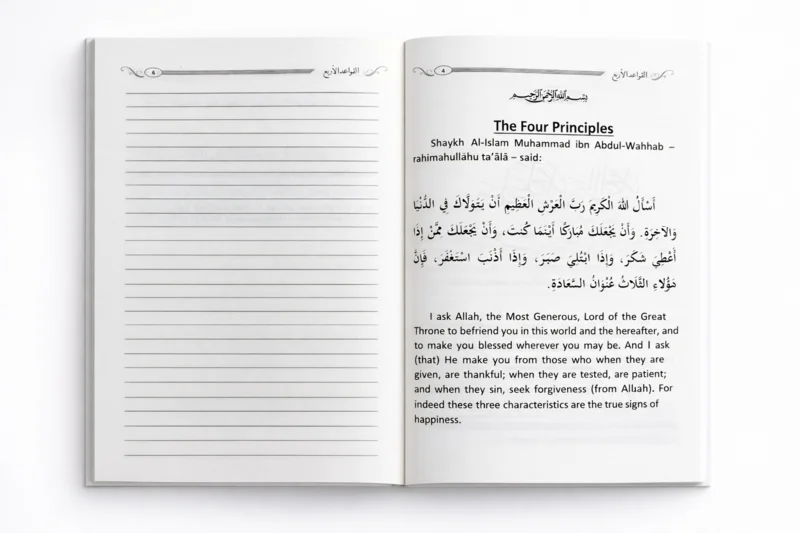 4
القواعد الأربع
4
القواعد الأربع
بسم الله الرحمن الرحيم
The Four Principles
Shaykh Al-Islam Muhammad ibn Abdul-Wahhab –
rahimahullāhu ta'ālā – said:
أَسْأَلُ اللهَ الْكَرِيمَ رَبَّ الْعَرْشِ الْعَظِيمِ أَنْ يَتَوَلَّاكَ فِي الدُّنْيَا
وَالآخِرَةِ. وَأَنْ يَجْعَلَكَ مُبَارَكًا أَيْنَمَا كُنتَ، وَأَنْ يَجْعَلَكَ مِمَّنْ إِذَا
أُعْطِيَ شَكَرَ، وَإِذَا ابْتُلِيَ صَبَرَ، وَإِذَا أَذْنَبَ اسْتَغْفَرَ، فَإِنَّ
هَؤُلَاءِ الثَّلَاثُ عُنْوَانُ السَّعَادَةِ.
I ask Allah, the Most Generous, Lord of the Great
Throne to befriend you in this world and the hereafter, and
to make you blessed wherever you may be. And I ask
(that) He make you from those who when they are
given, are thankful; when they are tested, are patient;
and when they sin, seek forgiveness (from Allah). For
indeed these three characteristics are the true signs of
happiness.